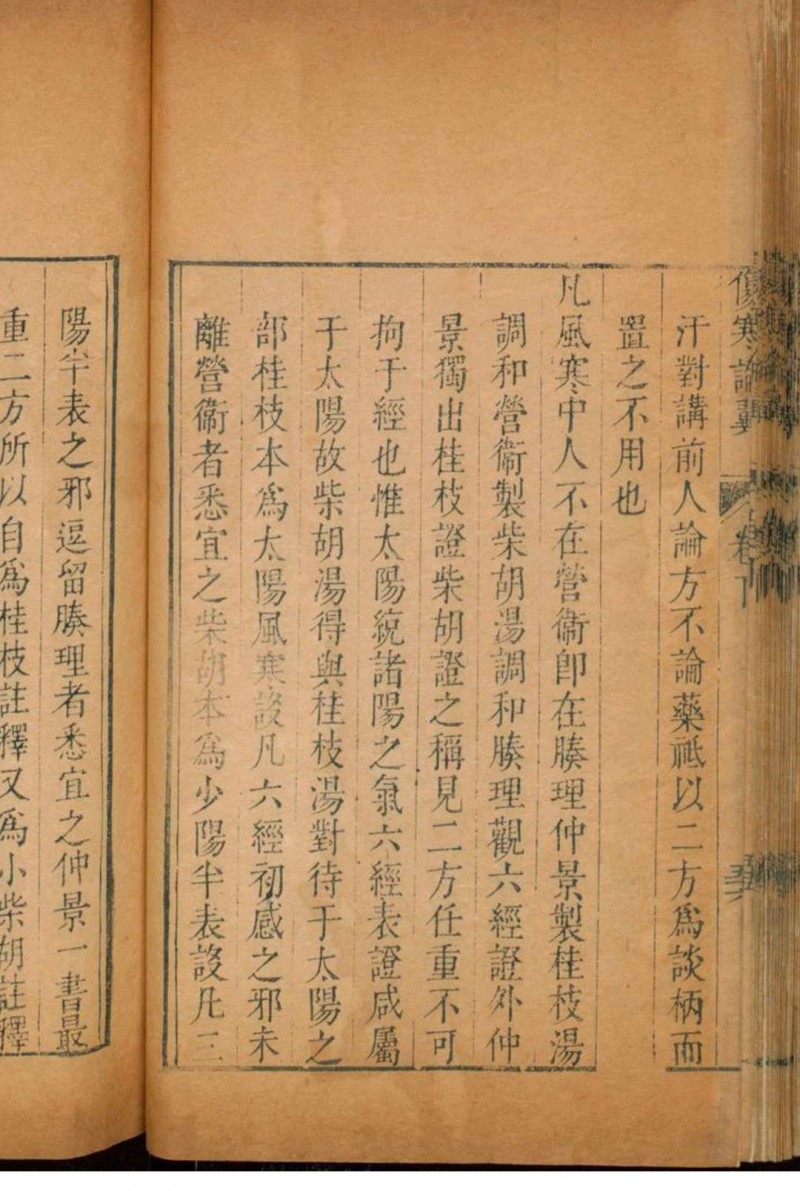 傷寒論翼
卷下
汗對講前人論方不論藥祗以二方爲談柄而
置之不用也
凡風寒中人不在營衞卽在腠理仲景製桂枝湯
調和營衞製柴胡湯調和腠理觀六經證外仲
景獨出桂枝證柴胡證之稱見二方任重不可
拘于經也惟太陽統諸陽之氣六經表證咸屬
于太陽故柴胡湯得與桂枝湯對待于太陽之
部桂枝本爲太陽風寒設凡六經初感之邪未
離營衞者悉宜之柴胡本爲少陽半表設凡三
陽半表之邪逗留腠理者悉宜之仲景一書最
重二方所以自爲桂枝註釋又爲小柴胡註釋